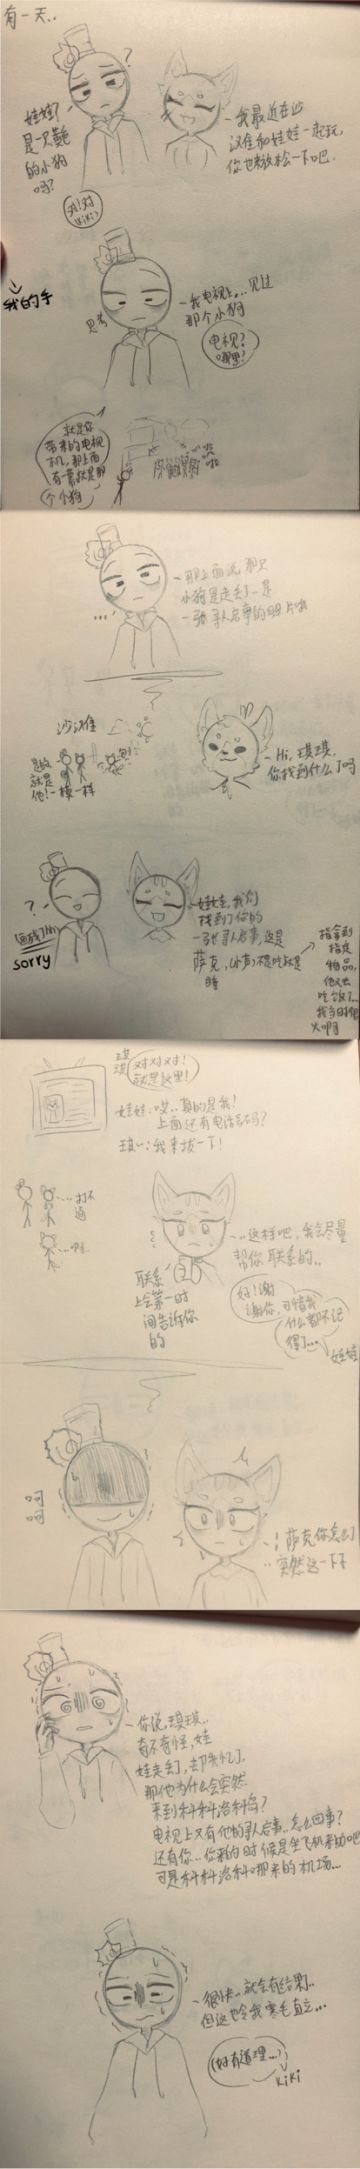 有一天..
?
娃娃?
是一只艳
的小狗
吗?
我最近在沙
汉堡和娃娃一起玩,
你也来放松一下吧.
我!对
(kiki)
我的手
思考
我电视上,...见过
那个小狗
电视?
哪里?
就是你
带来的电视
机,那上面
有一章就是那
个小狗
...
那上面说那只
小狗是走丢了一是
一张寻人启事的照片哦
Hi,琪琪,
你找到什么了吗
是的
就是
他!一模一样
?
sorry
娃娃,我们
找到了你的
一张寻人启事,这是
萨克
指拿到
指定
物品,
他又去
吃饭了..
琪琪
对对对!
就是这里!
娃娃:哎..真的是我!
上面还有电话号码?
琪琪:我来拔一下!
...打不
通
...这样吧,我会尽量
帮你联系的..
联系
上会第一时
间告诉你
的
好!谢
谢你,可惜我
什么都不记
得了...
娃娃
呵
呵
萨克你怎么了
突然这一下子
你说,琪琪..
奇不奇怪,娃
娃走丢了,却失忆了.
那他为什么会突然
来到科科洛科岛?
电视上又有他的寻人启事..怎么回事?
还有你..你来的时候是坐飞机来的吧
可是科科洛科哪来的机场...
很快..就会有结果..
但这也令我寒毛直立...
(好有道理...)
kiki